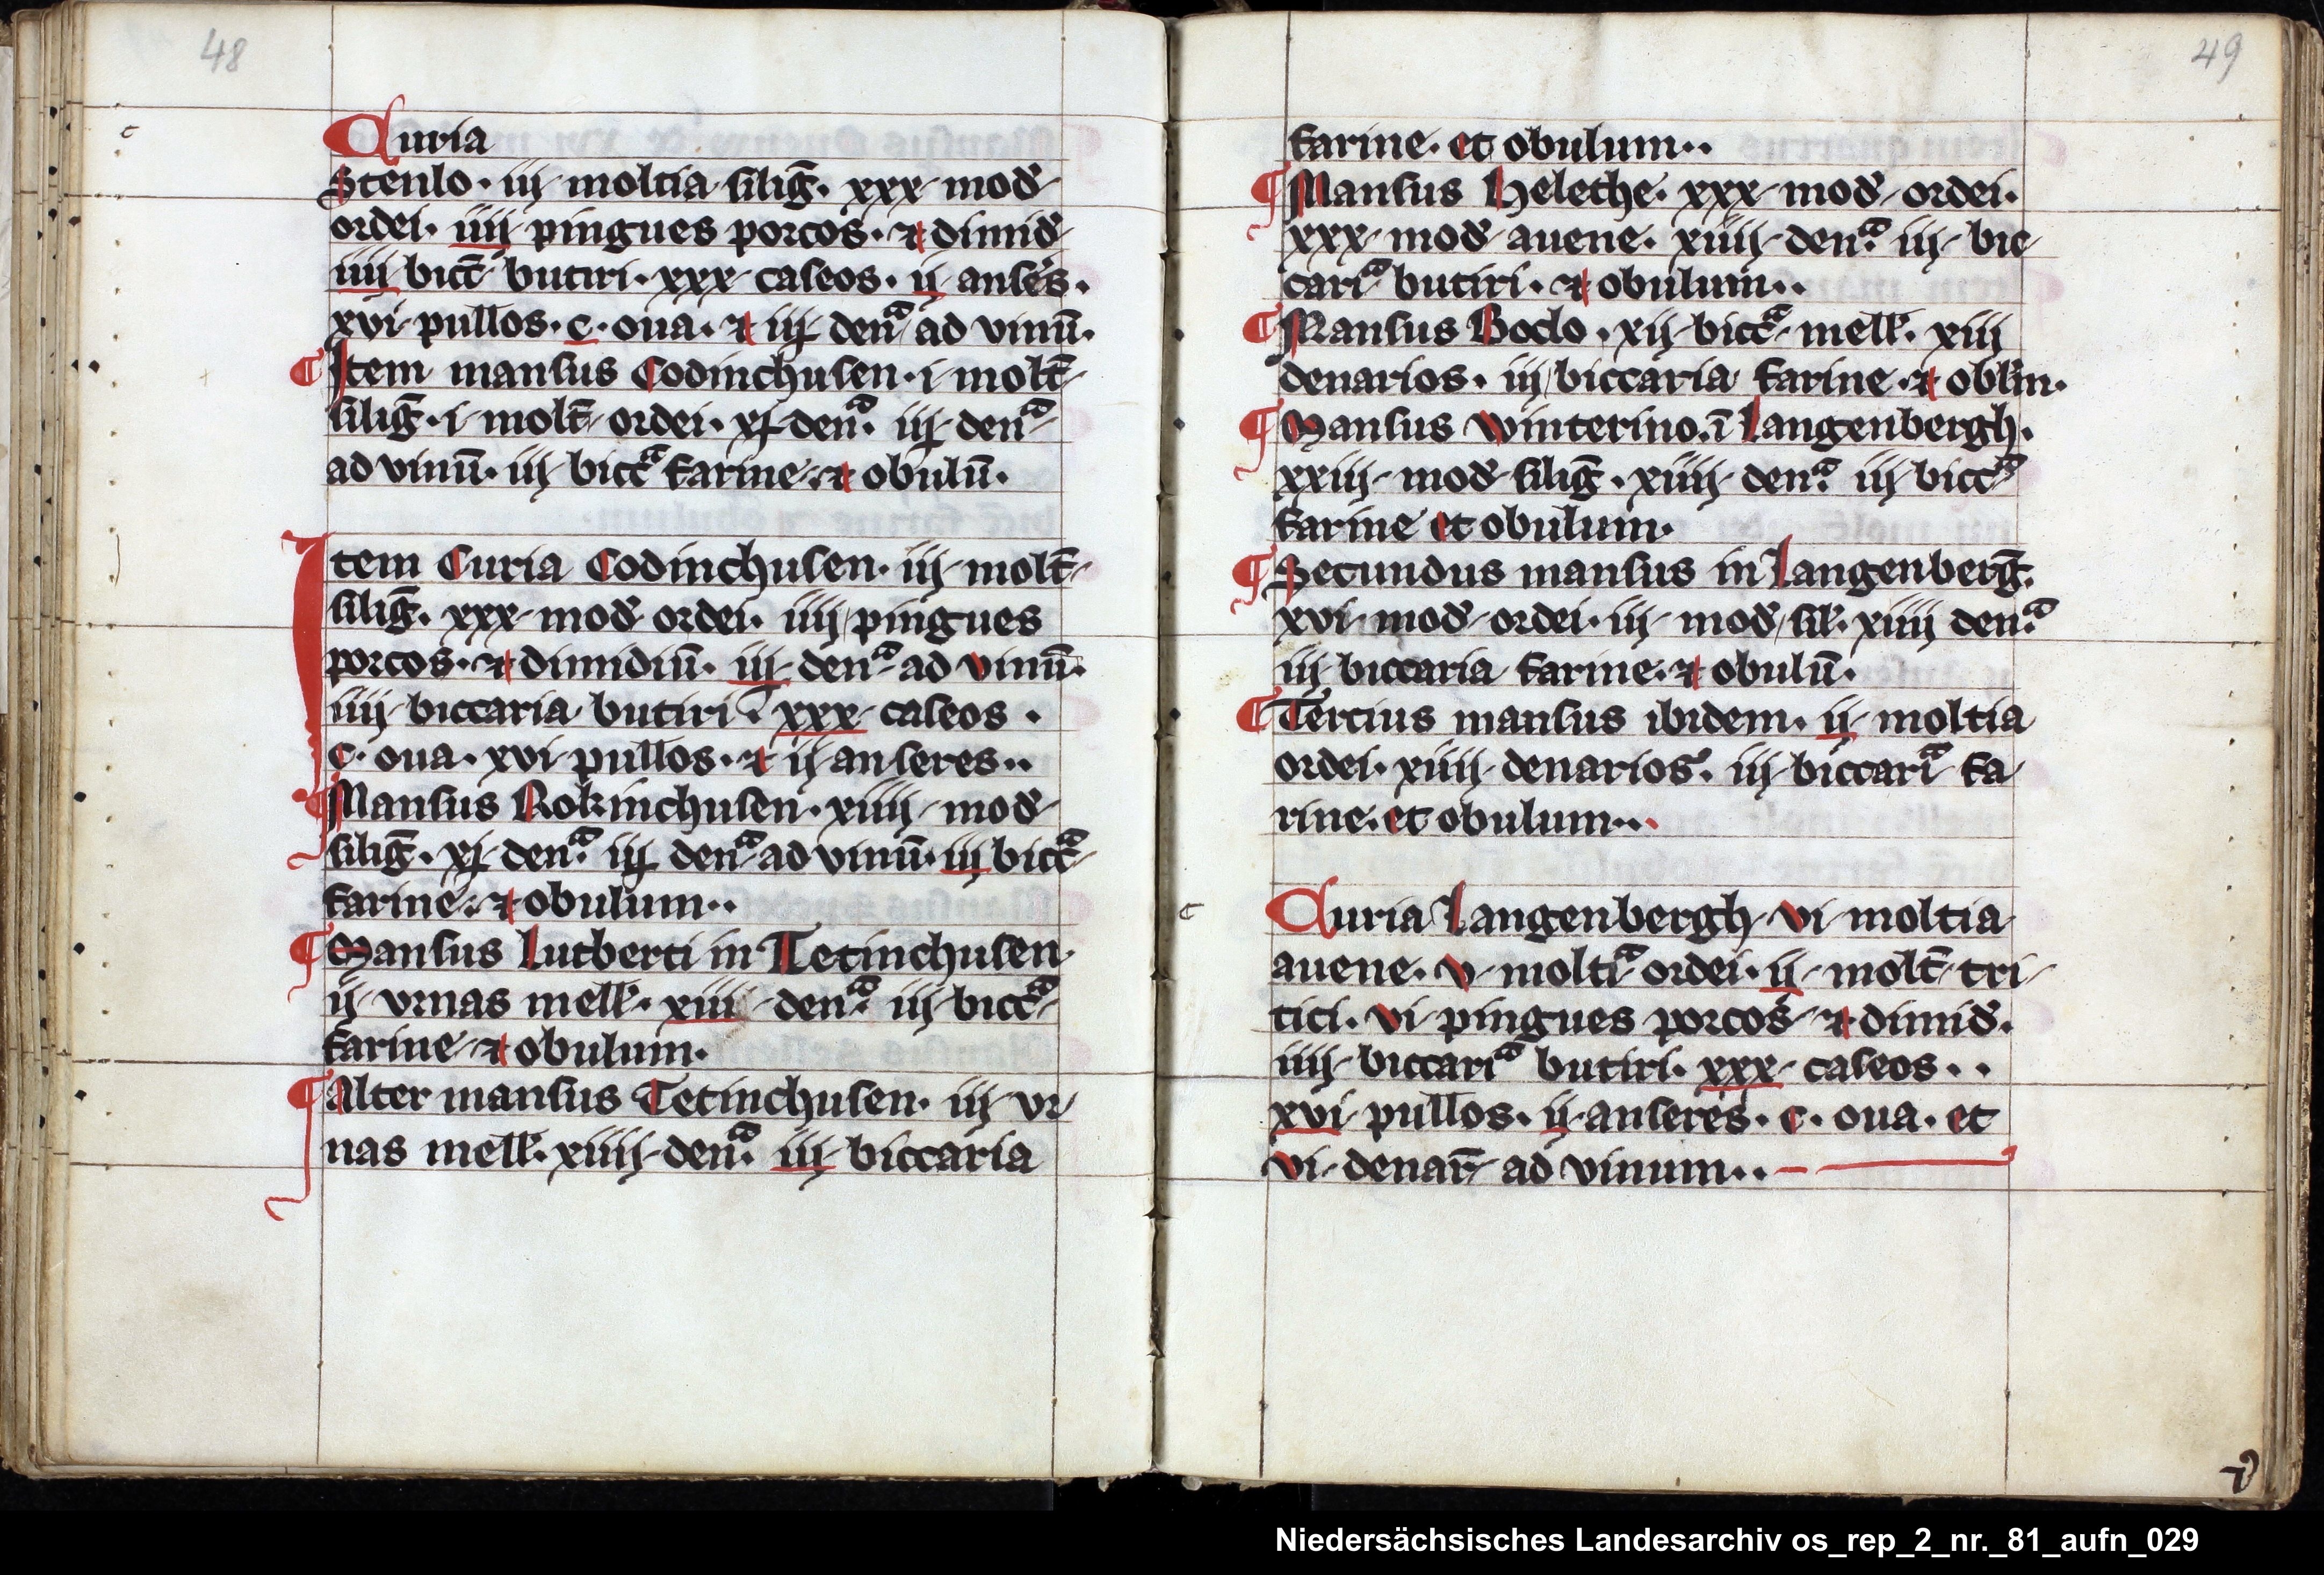 48
Curia
Stenlo · iij · moltia silig̅ · xxx · mod̅
ordei · iiij pingues porcos · ⁊ dimid̅
iiij bicc̅ butiri · xxx caseos · ij anses ·
xvi pullos · c · oua · ⁊ iij denᵃ ad vinu̅ ·
¶ Item mansus Codinchusen · i molt̅
silig̅ · i · molt̅ ordei · xj denᵃ · iij denᵃ
ad vinu̅ · iij biccᵃ farine · ⁊ obulu̅ ·
Item Curia Codinchusen · iij · molt̅
silig̅ · xxx · mod̅ ordei · iiij pingues
porcos · ⁊ dimidiu̅ · iij denᵃ ad vinu̅ ·
iiij biccaria butiri · xxx caseos ·
c · oua · xvi pullos · ⁊ ij anseres ··
¶ Mansus Rokinchusen · xiiij mod̅
silig̅ · xj denᵃ · iij denᵃ ad vinu̅ · iij biccᵃ
farine · ⁊ obulum ··
¶ Mansus Lutberti in Tetinchusen ·
ij vrnas mell̅ · xiiij denᵃ · iij biccᵃ
farine ⁊ obulum ·
¶ Alter mansus Tetinchusen · iij vr
nas mell̅ · xiiij denᵃ · iij biccaria
49
farine · et obulum ··
¶ Mansus Helethe · xxx mod̅ ordei ·
xxx mod̅ auene · xiiij denᵃ · iij bic
cariᵃ butiri · ⁊ obulum ··
¶ Mansus Boclo · xij biccᵃ mell̅ · xiii
denarios · iij biccaria farine · ⁊ oblm ·
¶ Mansus Winterino · i̅ Langenbergh ·
xxiij mod̅ silig̅ · xiiij denᵃ · iij biccᵃ
farine et obulum ·
¶ Secundus mansus in Langenberg̅ ·
xvi mod̅ ordei · iij mod̅ sil̅ · xiiij denᵃ ·
iij biccaria farine · ⁊ obulu̅ ·
¶ Tercius mansus ibidem · ij moltia
ordei · xiiij denarios · iij biccariᵃ fa
rine · et obulum ··
Curia Langenbergh vi moltia
auene · v moltiᵃ ordei · ij molt̅ tri
tici · vi pingues porcos ⁊ dimid̅ ·
iiij biccariᵃ butiri · xxx caseos ··
xvi pullos · ij anseres · c · oua · et
vi denar̅ ad vinum ··
Niedersächsisches Landesarchiv os_rep_2_nr._81_aufn_029